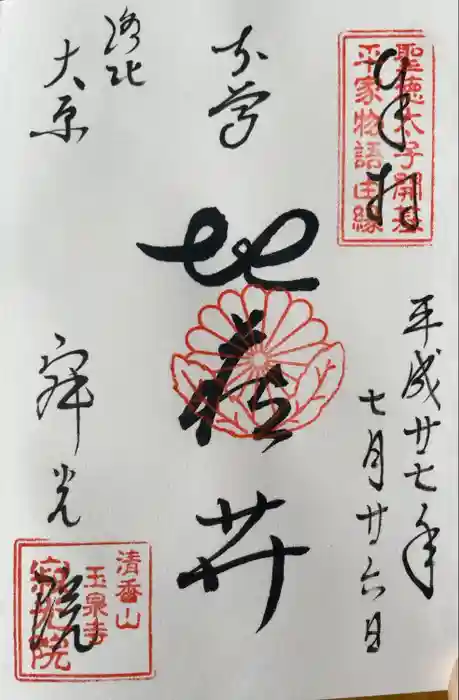 奉拝
聖徳太子開基
平家物語由縁
平成廿七年
七月廿六日
本尊
地蔵𦬇
洛北
大原
寂光院
清香山
玉泉寺
寂光院